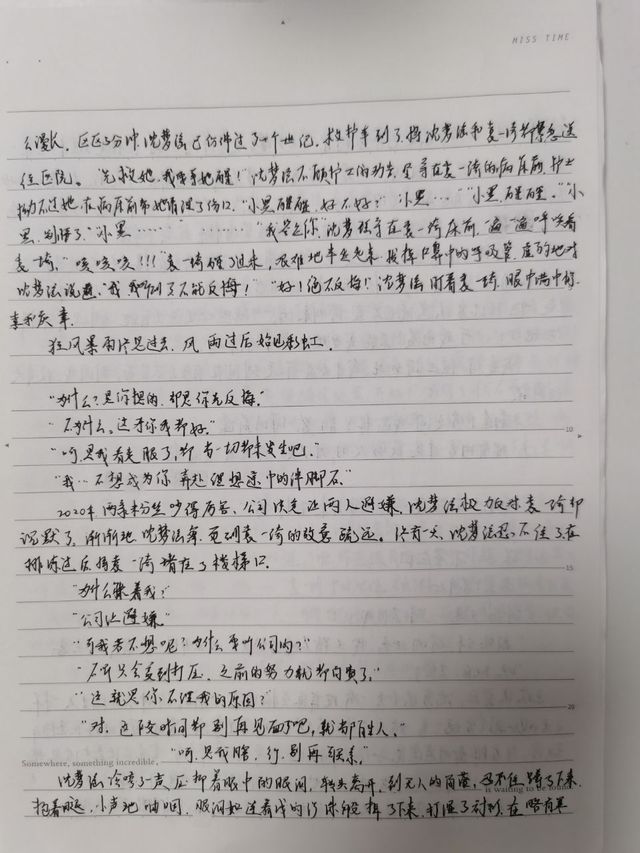 MISS TIME
么漫长，区区5分钟，沈梦瑶已仿佛过了一个世纪，救护车到了，将沈梦瑶和袁一琦都紧急送
往医院。"先救她，我要等她醒！"沈梦瑶不顾护士的劝告，坚守在袁一琦的病床前，护士
拗不过她，在病床前帮她清理了伤口，"小黑醒醒，好不好？""小黑…""小黑，醒醒。""小
黑，别睡了""小黑…… ……"我答应你"沈梦瑶守在袁一琦床前，一遍一遍呼唤着
袁一琦，"咳咳咳！！！"袁一琦醒了过来，艰难地半坐起来，拔掉口鼻中的呼吸管，虚弱地对
沈梦瑶说道："我，我听到了，不能反悔！""好！绝不反悔！"沈梦瑶盯着袁一琦，眼中满中的
喜和庆幸.
狂风暴雨终是过去，风雨过后始见彩虹.
"为什么？是你提的，却是你先反悔."
"不为什么，这样你我都好."
"呵，是我看走眼了，却当一切都未发生吧."
"我…不想成为你奔赴理想途中的绊脚石."
2020年两家粉丝吵得厉害，公司决定让两人避嫌，沈梦瑶极力反对，袁一琦却
沉默了，渐渐地，沈梦瑶察觉到袁一琦的故意疏远。终有一天，沈梦瑶忍不住了，在
排练过后将袁一琦堵在了楼梯口.
10
15
20
"为什么躲着我？"
"公司让避嫌"
"可我若不想呢？为什么要听公司的？"
"不听只会受到打压，之前的努力就都白费了."
"这就是你不理我的原因？"
"对，这段时间都别再见面了吧，就当陌生人."
"呵，是我瞎，行，别再联系."
Somewhere, something incredible,
沈梦瑶冷哼了一声，压抑着眼中的眼泪，转头离开，到无人的角落，忍不住蹲了下来，
it waiting to be
抱着腿，小声地呜咽，眼泪如连着线的珍珠般掉了下来，打湿了衬衫，在略有单